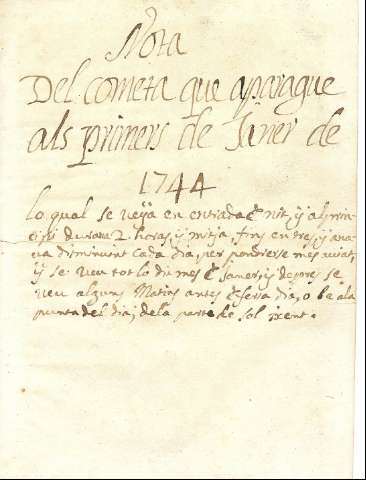 Nota
Del cometa que aparague
als primers de Jiner de
1744
lo qual se veya en entrada de nit, y al prin-
cipi durava 2 horas y mitja, fins en tres, y ana-
va disminuint cada dia, per pondrerse mes aviat,
y se veu tot lo di mes de Janer, y despres se
veu alguns Matins antes de ferse dia, o be a la
punta del dia, de la part de sol ixent.